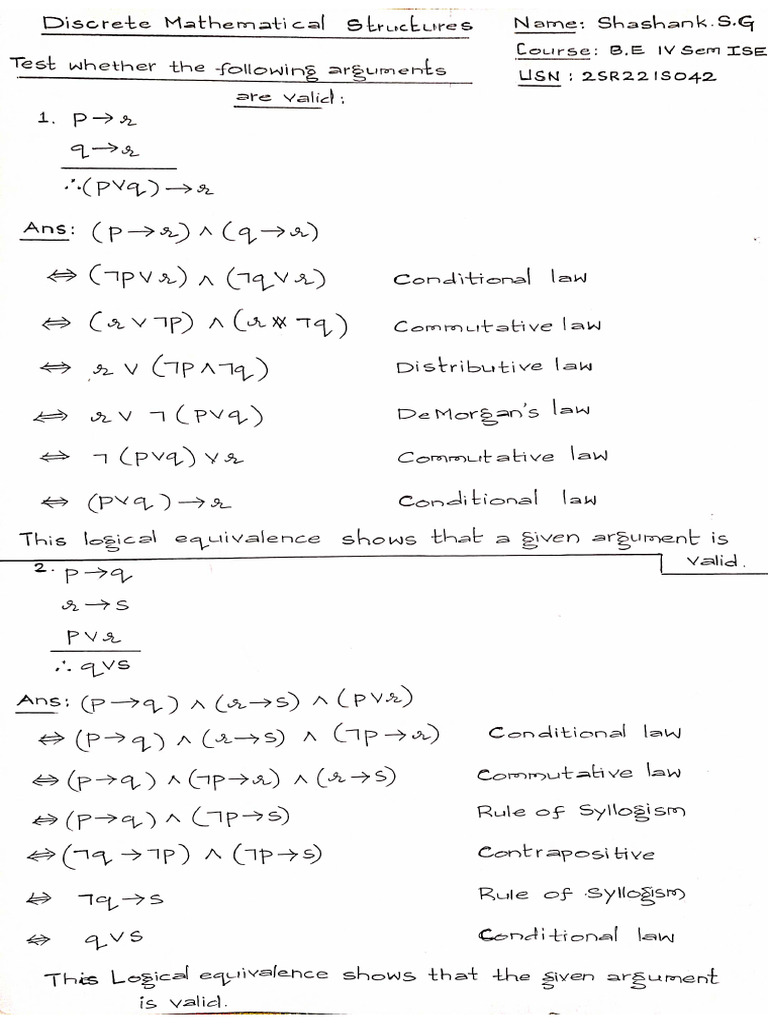 Discrete Mathematical Structures
Name: Shashank.S.G
Course: B.E IV Sem ISE
USN: 2SR22IS042
Test whether the following arguments
are valid:
1. p → r
q → r
∴ (p∨q) → r
Ans: (p → r) ∧ (q → r)
⇔ (¬p∨r) ∧ (¬q∨r) Conditional law
⇔ (r∨¬p) ∧ (r∨¬q) Commutative law
⇔ r ∨ (¬p∧¬q) Distributive law
⇔ r ∨ ¬(p∨q) DeMorgan's law
⇔ ¬(p∨q)∨r Commutative law
⇔ (p∨q) → r Conditional law
This logical equivalence shows that a given argument is
valid.
2. p → q
r → s
p∨r
∴ q∨s
Ans: (p → q) ∧ (r → s) ∧ (p∨r)
⇔ (p → q) ∧ (r → s) ∧ (¬p → r) Conditional law
⇔ (p → q) ∧ (¬p → r) ∧ (r → s) Commutative law
⇔ (p → q) ∧ (¬p → s) Rule of Syllogism
⇔ (¬q → ¬p) ∧ (¬p → s) Contrapositive
⇔ ¬q → s Rule of Syllogism
⇔ q∨s Conditional law
This Logical equivalence shows that the given argument
is valid.